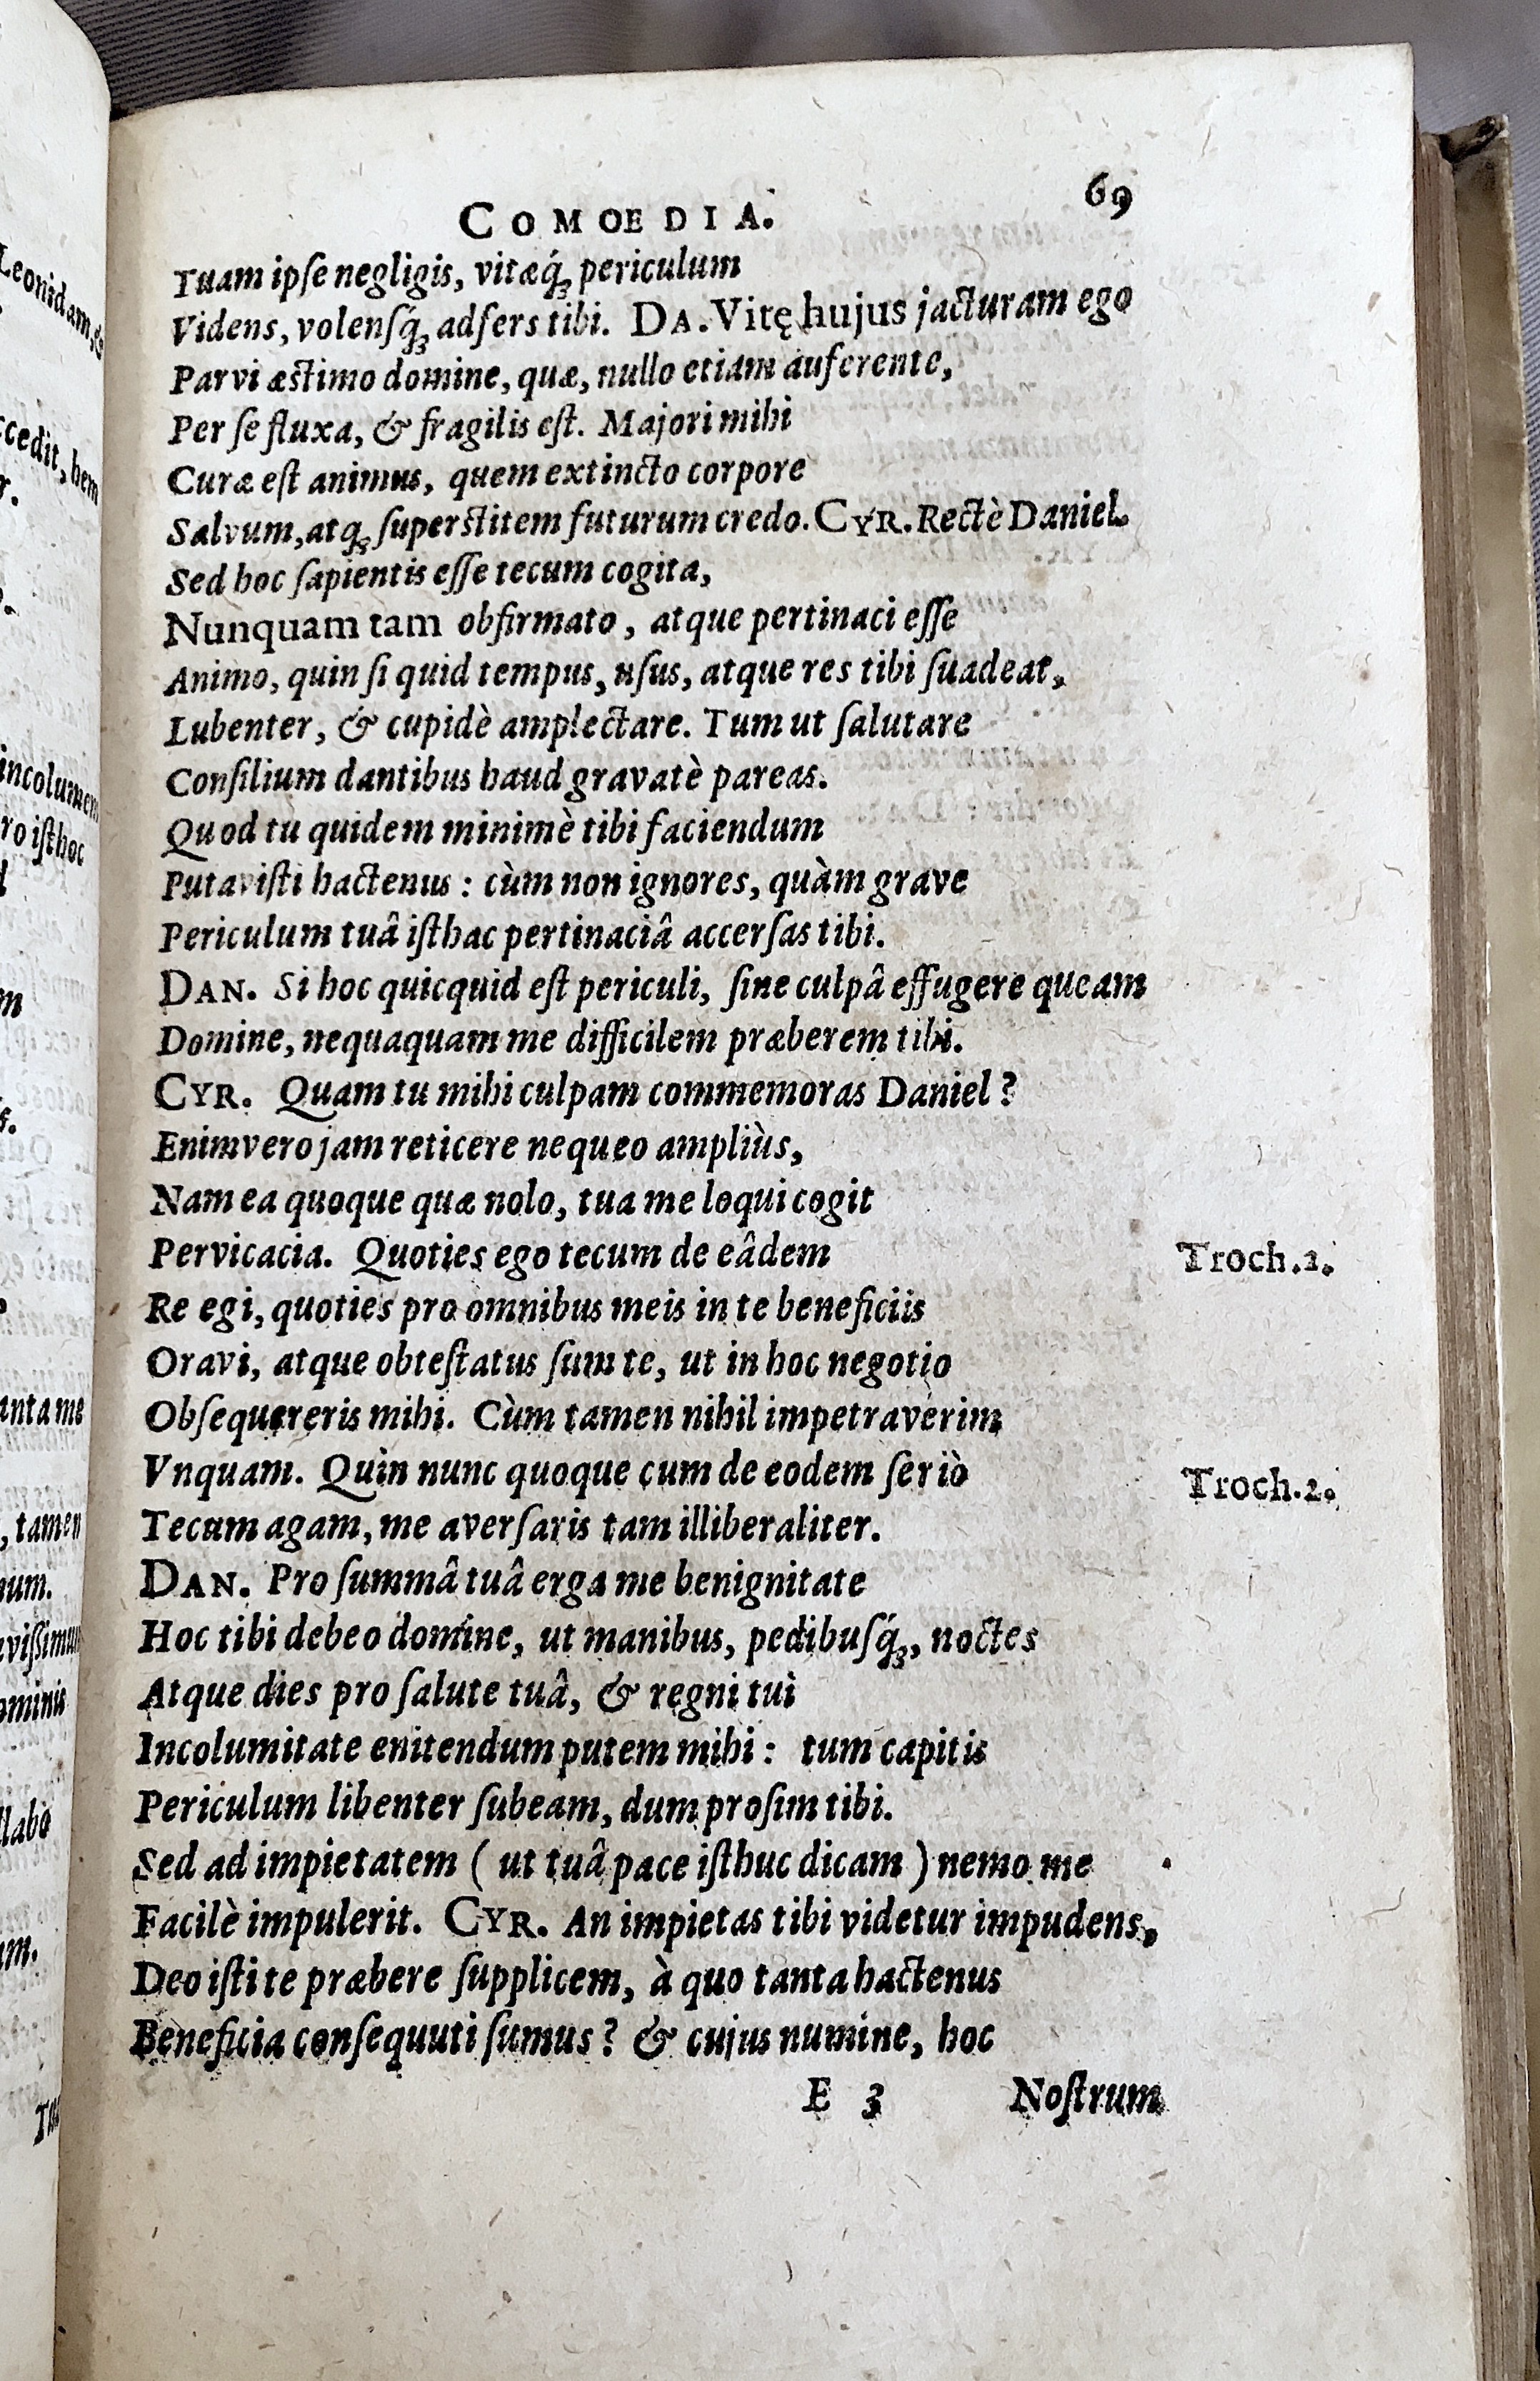 COMOEDIA. 69
Tuam ipſe negligis, vitæq́ꝫ periculum
Videns, volenſq́ꝫ adſers tibi. DA. Vitę hujus jacturam ego
Parvi æſtimo domine, quæ, nullo etiam auferente,
Per ſe fluxa, & fragilis eſt. Majori mihi
Curæ eſt animus, quem extincto corpore
Salvum, atqꝫ ſuperſtitem futurum credo. CYR. Rectè Daniel.
Sed hoc ſapientis eſſe tecum cogita,
Nunquam tam obfirmato, atque pertinaci eſſe
Animo, quin ſi quid tempus, uſus, atque res tibi ſuadeat,
Lubenter, & cupidè amplectare. Tum ut ſalutare
Conſilium dantibus haud gravatè pareas.
Quod tu quidem minimè tibi faciendum
Putaviſti hactenus : cùm non ignores, quàm grave
Periculum tuâ iſthac pertinaciâ accerſas tibi.
DAN. Si hoc quicquid eſt periculi, ſine culpâ effugere queam
Domine, nequaquam me difficilem præberem tibi.
CYR. Quam tu mihi culpam commemoras Daniel ?
Enimvero jam reticere nequeo ampliùs,
Nam ea quoque quæ nolo, tua me loqui cogit
Pervicacia. Quoties ego tecum de eâdem Troch.2.
Re egi, quoties pro omnibus meis in te beneficiis
Oravi, atque obteſtatus ſum te, ut in hoc negotio
Obſequereris mihi. Cùm tamen nihil impetraverim
Vnquam. Quìn nunc quoque cum de eodem ſeriò Troch.2.
Tecum agam, me averſaris tam illiberaliter.
DAN. Pro ſummâ tuâ erga me benignitate
Hoc tibi debeo domine, ut manibus, pedibuſq́ꝫ, noctes
Atque dies pro ſalute tuâ, & regni tui
Incolumitate enitendum putem mihi : tum capitis
Periculum libenter ſubeam, dum proſim tibi.
Sed ad impietatem ( ut tuâ pace iſthuc dicam ) nemo me
Facilè impulerit. CYR. An impietas tibi videtur impudens,
Deo iſti te præbere ſupplicem, à quo tanta hactenus
Beneficia conſequuti ſumus ? & cujus numine, hoc
E 3 Noſtrum